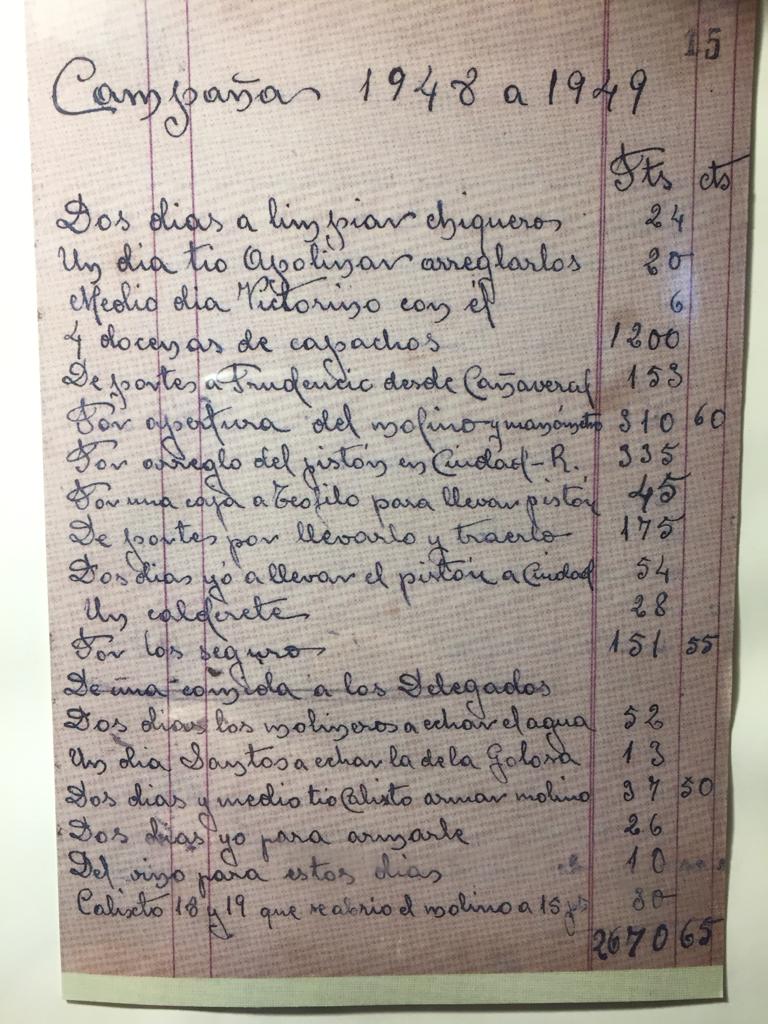 15
Campaña 1948 a 1949
Pts cts
Dos dias a limpiar chiqueros 24
Un dia tio Apolinar arreglarlos 20
Medio dia Victorino con él 6
4 docenas de capachos 1200
De portes a Prudencio desde Cañaveral 153
Por apertura del molino y manómetro 310 60
Por arreglo del pistón en Ciudad-R. 335
Por una caja a Teofilo para llevar pistón 45
De portes por llevarlo y traerlo 175
Dos dias yó a llevar el pistón a Ciudad 54
Un calderete 28
Por los seguro 151 55
De una comida a los Delegados
Dos dias los molineros a echar el agua 52
Un dia Santos a echar la de la Golosa 13
Dos dias y medio tio Calisto armar molino 37 50
Dos dias yo para armarle 26
Del vino para estos dias 10
Calixto 18 y 19 que se abrio el molino a 15 30
2670 65